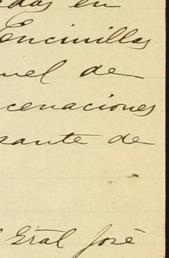 das en
Encinillas
uel de
cenaciones
sante de
l Gral José